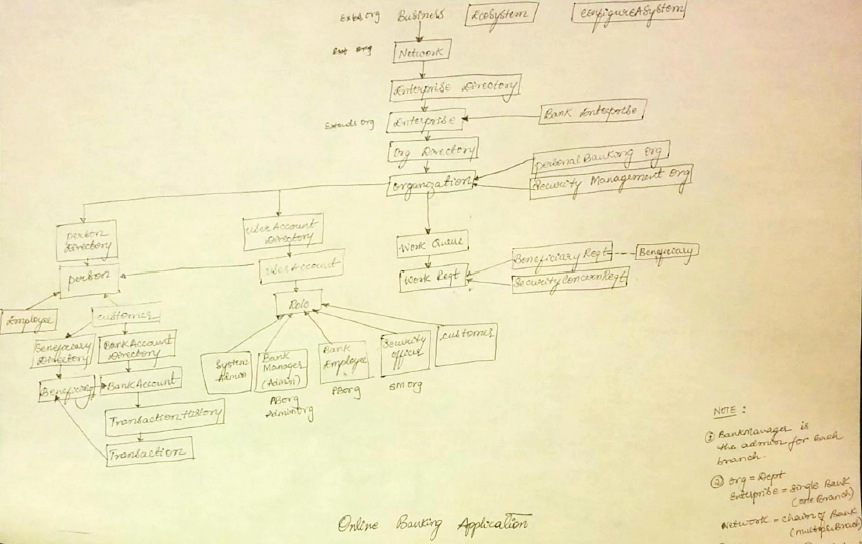 Extends Org
Business
Ecosystem
ConfigureASystem
Ext Org
Network
Enterprise Directory
Extends Org
Enterprise
Bank Enterprise
Org Directory
Personal Banking Org
Organization
Security Management Org
Person
Directory
UserAccount
Directory
Work Queue
Person
UserAccount
Work Reqt
Beneficiary Reqt
Beneficiary
SecurityConcernReqt
Employee
Customer
Role
Beneficiary
Directory
BankAccount
Directory
System
Admin
Bank
Manager
(Admin)
Bank
Employee
Security
Officer
Customer
Beneficiary
BankAccount
PBorg
Adminorg
PBorg
SMorg
TransactionHistory
Transaction
NOTE :
① BankManager is
the admin for each
branch.
② Org = Dept
Enterprise = Single Bank
(one Branch)
Network = Chain of Bank
(multiple Branch)
Online Banking Application